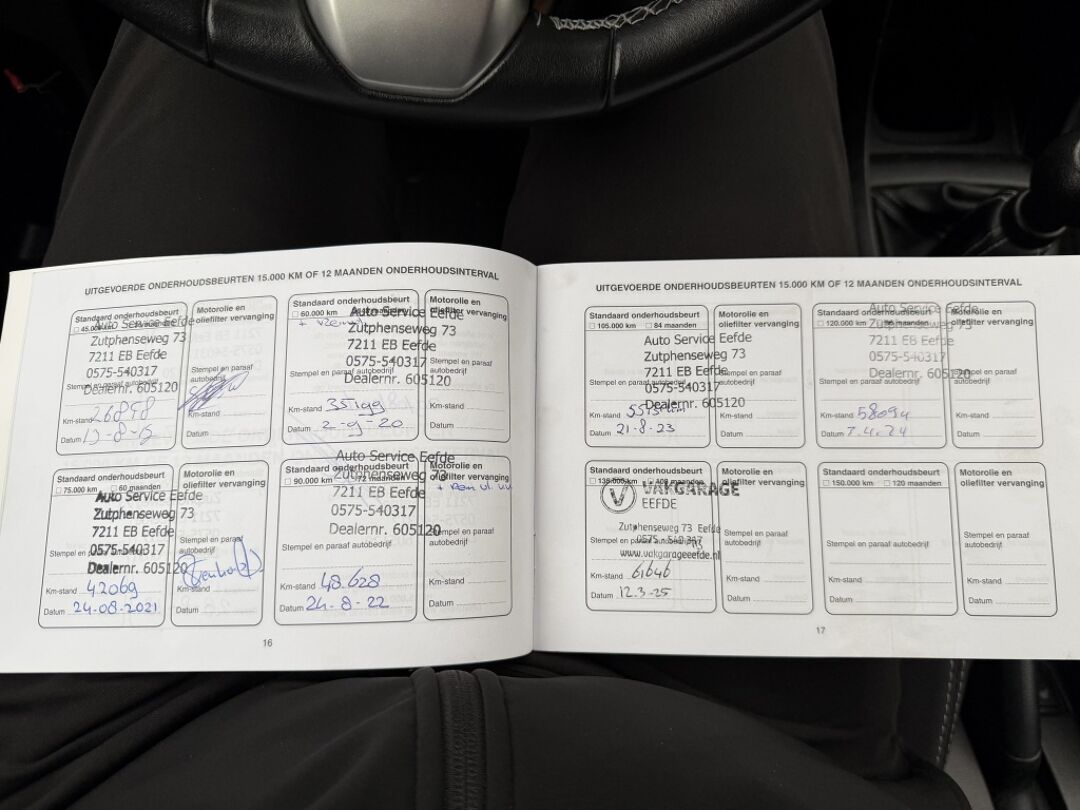 UITGEVOERDE ONDERHOUDSBEURTEN 15.000 KM OF 12 MAANDEN ONDERHOUDSINTERVAL
Standaard onderhoudsbeurt
Auto Service Eefde
Zutphenseweg 73
7211 EB Eefde
0575-540317
Stempel en paraaf autobedrijf
Dealernr. 605120
Km-stand 26858
Datum
Motorolie en
oliefilter vervanging
Stempel en paraaf
autobedrijf
Km-stand
Datum
Standaard onderhoudsbeurt
60.000 km
Auto Service Eefde
Zutphenseweg 73
7211 EB Eefde
0575-540317
Dealernr. 605120
Km-stand 35199
Datum 2-9-20
Motorolie en
oliefilter vervanging
Stempel en paraaf
autobedrijf
Km-stand
Datum
Standaard onderhoudsbeurt
75.000 km 60 maanden
Auto Service Eefde
Zutphenseweg 73
7211 EB Eefde
0575-540317
Dealernr. 605120
Km-stand 42069
Datum 24-08-2021
Motorolie en
oliefilter vervanging
Stempel en paraaf
autobedrijf
Km-stand
Datum
Standaard onderhoudsbeurt
90.000 km 72 maanden
Auto Service Eefde
Zutphenseweg 73
7211 EB Eefde
0575-540317
Dealernr. 605120
Stempel en paraaf autobedrijf
Km-stand 48.628
Datum 24-8-22
Motorolie en
oliefilter vervanging
Stempel en paraaf
autobedrijf
Km-stand
Datum
16
UITGEVOERDE ONDERHOUDSBEURTEN 15.000 KM OF 12 MAANDEN ONDERHOUDSINTERVAL
Standaard onderhoudsbeurt
105.000 km 84 maanden
Auto Service Eefde
Zutphenseweg 73
7211 EB Eefde
0575-540317
Stempel en paraaf autobedrijf
Dealernr. 605120
Km-stand
Datum 21-8-23
Motorolie en
oliefilter vervanging
Stempel en paraaf
autobedrijf
Km-stand
Datum
Standaard onderhoudsbeurt
120.000 km 96 maanden
Auto Service Eefde
Zutphenseweg 73
7211 EB Eefde
0575-540317
Dealernr. 605120
Stempel en paraaf autobedrijf
Km-stand 58094
Datum 7.4.24
Motorolie en
oliefilter vervanging
Stempel en paraaf
autobedrijf
Km-stand
Datum
Standaard onderhoudsbeurt
135.000 km 108 maanden
VAKGARAGE
EEFDE
Zutphenseweg 73 Eefde
0575-540317
Stempel en paraaf autobedrijf
www.vakgarageeefde.nl
Km-stand 61646
Datum 12.3-25
Motorolie en
oliefilter vervanging
Stempel en paraaf
autobedrijf
Km-stand
Datum
Standaard onderhoudsbeurt
150.000 km 120 maanden
Stempel en paraaf autobedrijf
Km-stand
Datum
Motorolie en
oliefilter vervanging
Stempel en paraaf
autobedrijf
Km-stand
Datum
17